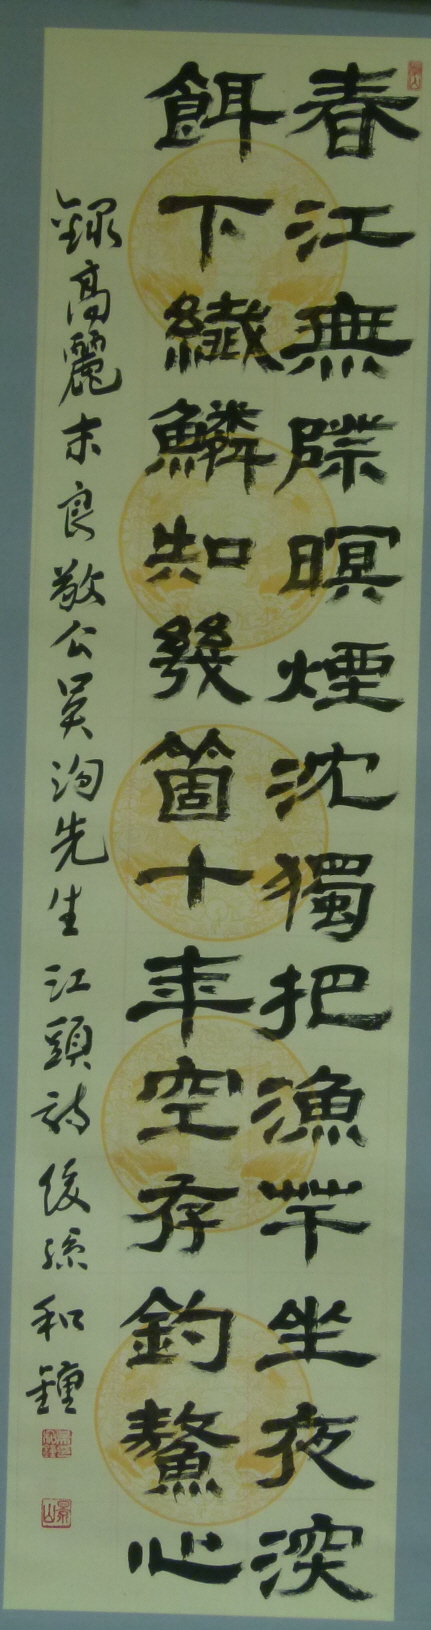 春江無際暝煙沈獨把漁竿坐夜深
餌下纖鱗知幾箇十年空存釣鰲心
錄高麗末良敬公吳洵先生江頭詩後孫和鍾